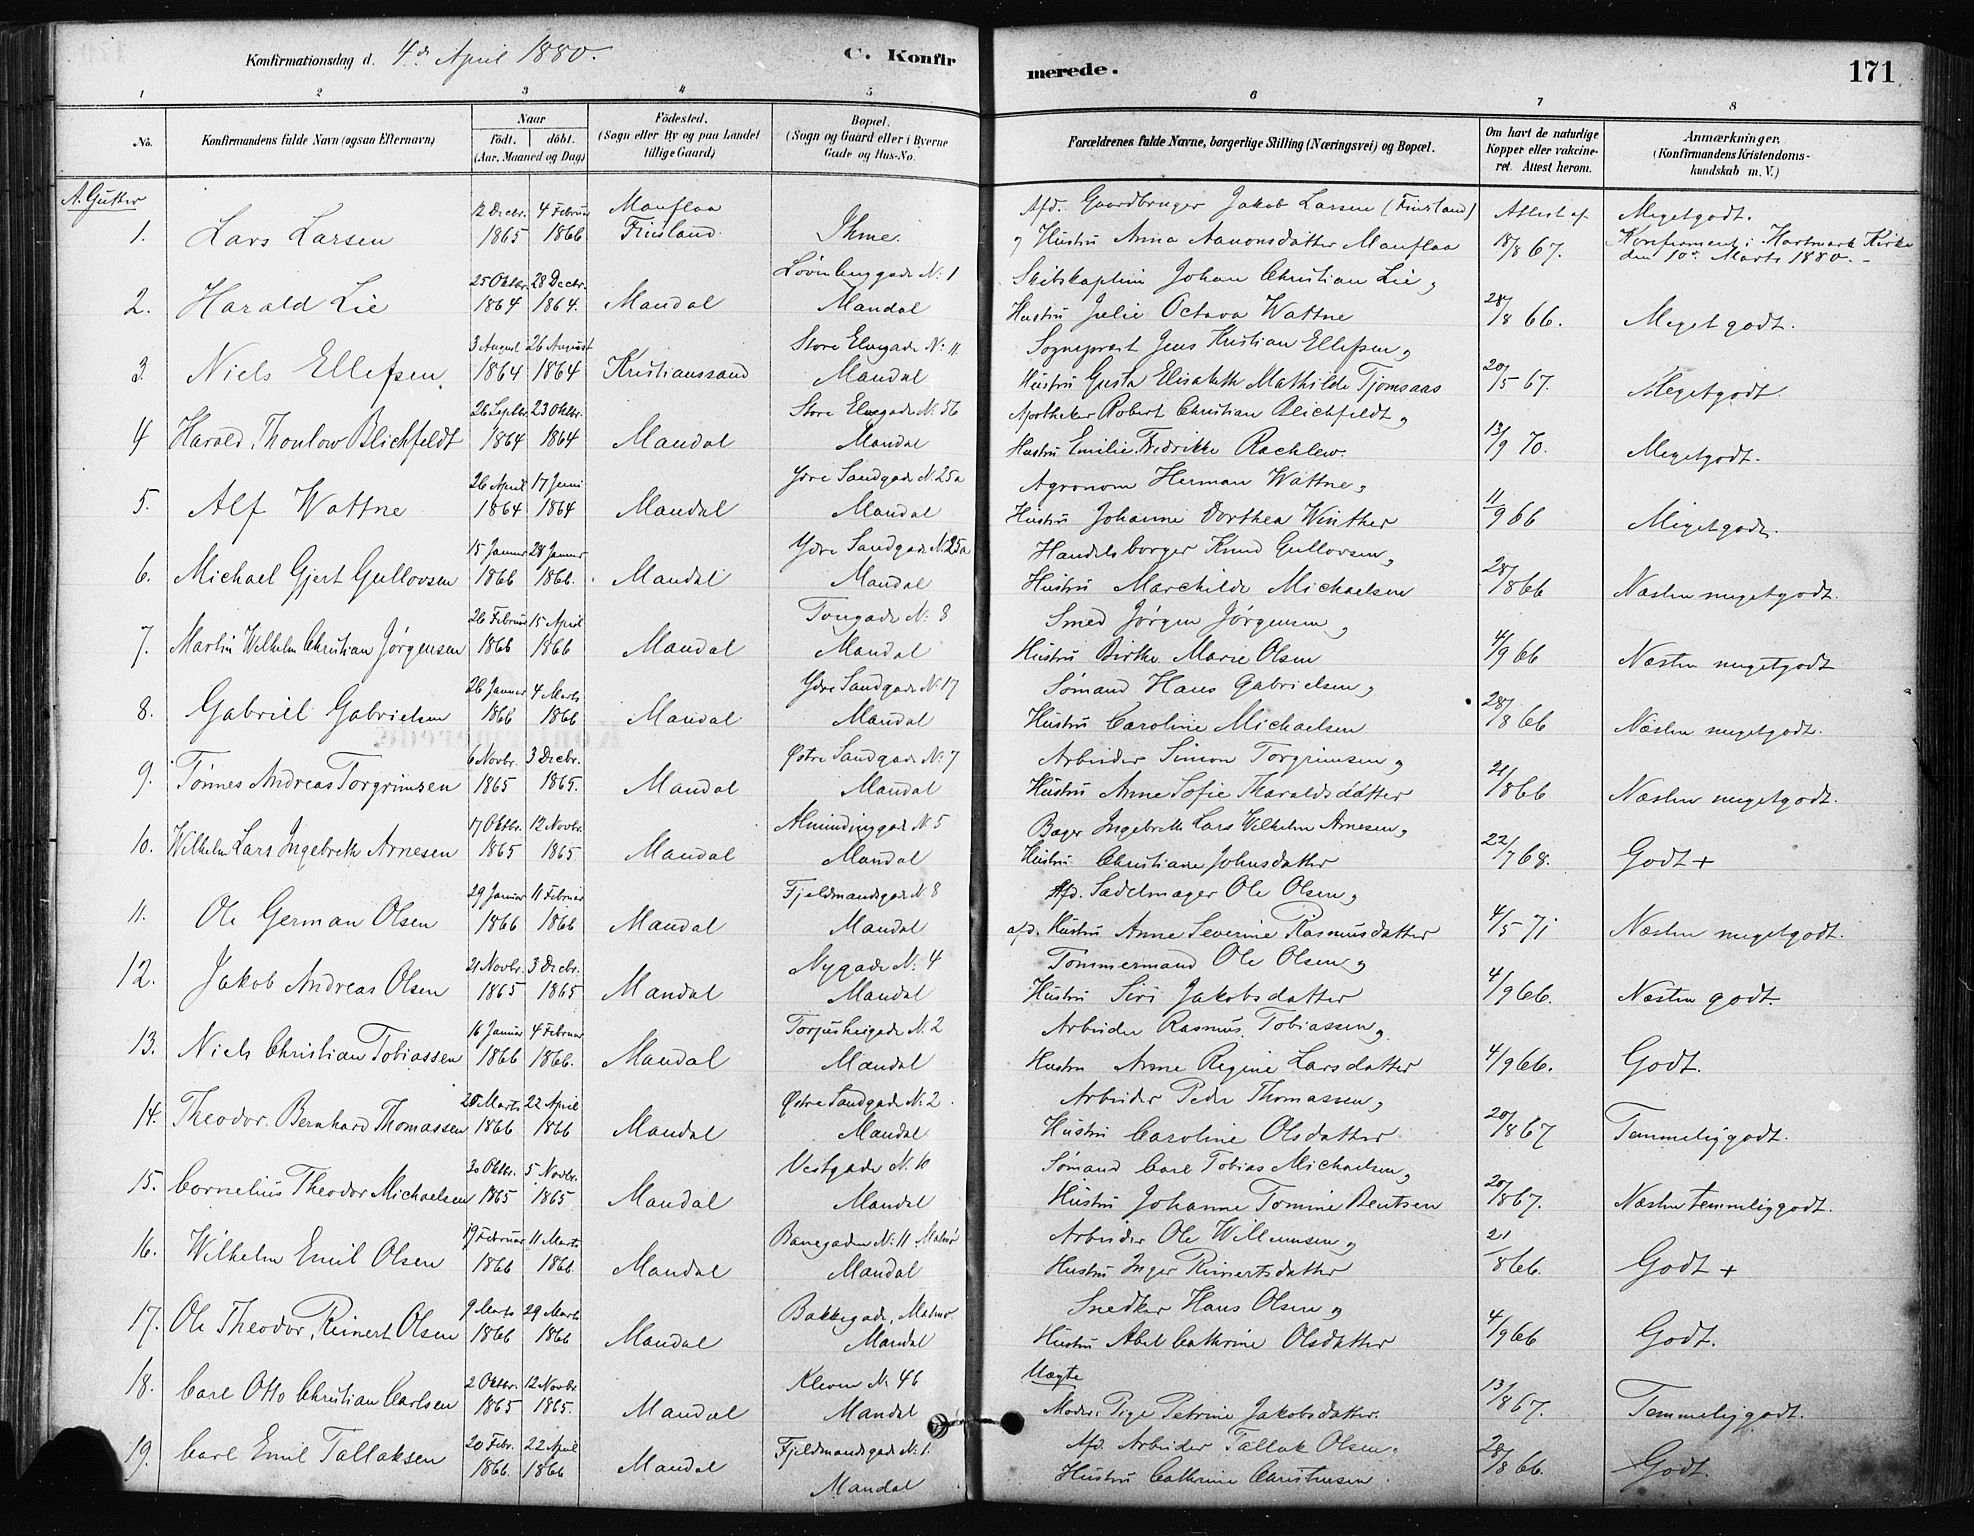 Konfirmationsdag d. 4de April 1880.
C. Konfirmerede.
171
1 2 3 4 5 6 7 8
No. Konfirmandens fulde Navn (ogsaa Efternavn) Naar født. døbt. (Aar, Maaned og Dag) Fødested. (Sogn eller By og paa Landet tillige Gaard) Bopæl. (Sogn og Gaard eller i Byerne Gade og Hus-No. Forældrenes fulde Navne, borgerlige Stilling (Næringsvei) og Bopæl. Om havt de naturlige Kopper eller vakcineret. Attest herom. Anmærkninger. (Konfirmandens Kristendomskundskab m. V.)
A. Gutter
12 Decbr. 4 Februar Manflaa Afd. Gaardbruger Jakob Larsen (Finsland) Attest af Megetgodt.
1. Lars Larsen 1865 1866 Finsland Ihme. og Hustru Anna Aanonsdatter Manflaa 18/8 67. Konfirmeret i Hartmark Kirke den 10de Marts 1880.
25 Oktbr. 28 Decbr. Løvenberggade N: 1 Skibskaptein Johan Christian Lie og
2. Harald Lie 1864 1864. Mandal Mandal Hustru Julie Octava Wattne 28/8 66. Megetgodt.
3 August 26 August Store Elvegade N: 11 Sogneprest Jens Kristian Ellefsen og
3. Niels Ellefsen 1864 1864 Kristianssand Mandal Hustru Gusta Elisabeth Mathilde Tjomsaas 20/5 67. Megetgodt.
26 Septbr. 23 Oktbr. Store Elvegade N. 56 Apotheker Robert Christian Blichfeldt og
4 Harald Thaulow Blichfeldt 1864 1864 Mandal Mandal Hustru Emilie Fredrikke Rachlew. 13/9 70. Megetgodt.
26 April 17 Juni Ydre Sandgade N. 25a Agronom Herman Wattne og
5. Alf Wattne 1864 1864 Mandal Mandal Hustru Johanne Dorthea Winther 11/9 66 Megetgodt.
15 Januar 28 Januar Ydre Sandgade N. 25a Handelsborger Knud Gullovsen og
6. Michael Gjert Gullovsen 1866 1866. Mandal Mandal Hustru Marchilde Michaelsen 28/8 66 Næsten megetgodt.
26 Februar 15 April Torvgade N: 8 Smed Jørgen Jørgensen og
7. Martin Wilhelm Christian Jørgensen 1866 1866 Mandal Mandal Hustru Birthe Marie Olsen 4/9 66 Næsten megetgodt
26 Januar 4 Marts Ydre Sandgade N. 17 Sømand Hans Gabrielsen og
8. Gabriel Gabrielsen 1866 1866 Mandal Mandal Hustru Caroline Michaelsen 28/8 66 Næsten megetgodt.
6 Novbr. 3 Decbr. Østre Sandgade N: 7 Arbeider Simon Torgrimsen og
9. Tønnes Andreas Torgrimsen 1865 1865. Mandal Mandal Hustru Anne Sofie Tharaldsdatter 21/8 66 Næsten megetgodt.
17 Oktbr. 12 Novbr. Almindinggade N. 5 Bager Ingebreth Lars Wilhelm Arnesen og
10. Wilhelm Lars Ingebreth Arnesen 1865 1865 Mandal Mandal Hustru Christiane Johnsdatter 22/7 68. Godt +
29 Januar 11 Februar Fjeldmandsgade N. 8 Afd. Sadelmager Ole Olsen og
11. Ole German Olsen 1866 1866 Mandal Mandal afd. Hustru Anne Severine Rasmusdatter 4/5 71 Næsten megetgodt.
21 Novbr. 3 Decbr. Nygade N: 4 Tømmermand Ole Olsen og
12. Jakob Andreas Olsen 1865 1865 Mandal Mandal Hustru Siri Jakobsdatter 4/9 66. Næsten godt.
16 Januar 4 Februar Torjusheigade N. 2 Arbeider Rasmus Tobiassen og
13. Niels Christian Tobiassen 1866 1866. Mandal Mandal Hustru Anne Regine Larsdatter 4/9 66. Godt.
20 Marts 22 April Østre Sandgade N: 2. Arbeider Peder Thomassen og
14. Theodor Bernhard Thomassen 1866 1866 Mandal Mandal Hustru Caroline Olsdatter 20/8 67 Temmeliggodt.
20 Oktbr. 5 Novbr. Vestgade N. 10 Sømand Carl Tobias Michaelsen og
15. Cornelius Theodor Michaelsen 1865 1865 Mandal Mandal Hustru Johanne Tomine Bentsen 20/8 67. Næsten temmeliggodt.
19 Februar 11 Marts Banegaden N: 11 Malmø Arbeider Ole Willumsen og
16. Wilhelm Emil Olsen 1866 1866 Mandal Mandal Hustru Inger Reinertsdatter 21/8 66. Godt +
9 Marts 29 Marts Bakkegade, Malmø Snedker Hans Olsen og
17. Ole Theodor Reinert Olsen 1866 1866 Mandal Mandal Hustru Abel Cathrine Olsdatter 4/9 66 Godt.
2 Oktbr. 12 Novbr Kleven N. 46 Uægte
18. Carl Otto Christian Carlsen 1865 1865. Mandal Mandal Moder: Pige Petrine Jakobsdatter. 13/8 67. Temmeliggodt.
20 Febr. 22 April Fjeldmandsgade N: 1. Afd. Arbeider Tallak Olsen og
19. Carl Emil Tallaksen 1866. 1866 Mandal Mandal Hustru Cathrine Christensen. 28/8 66. Godt.